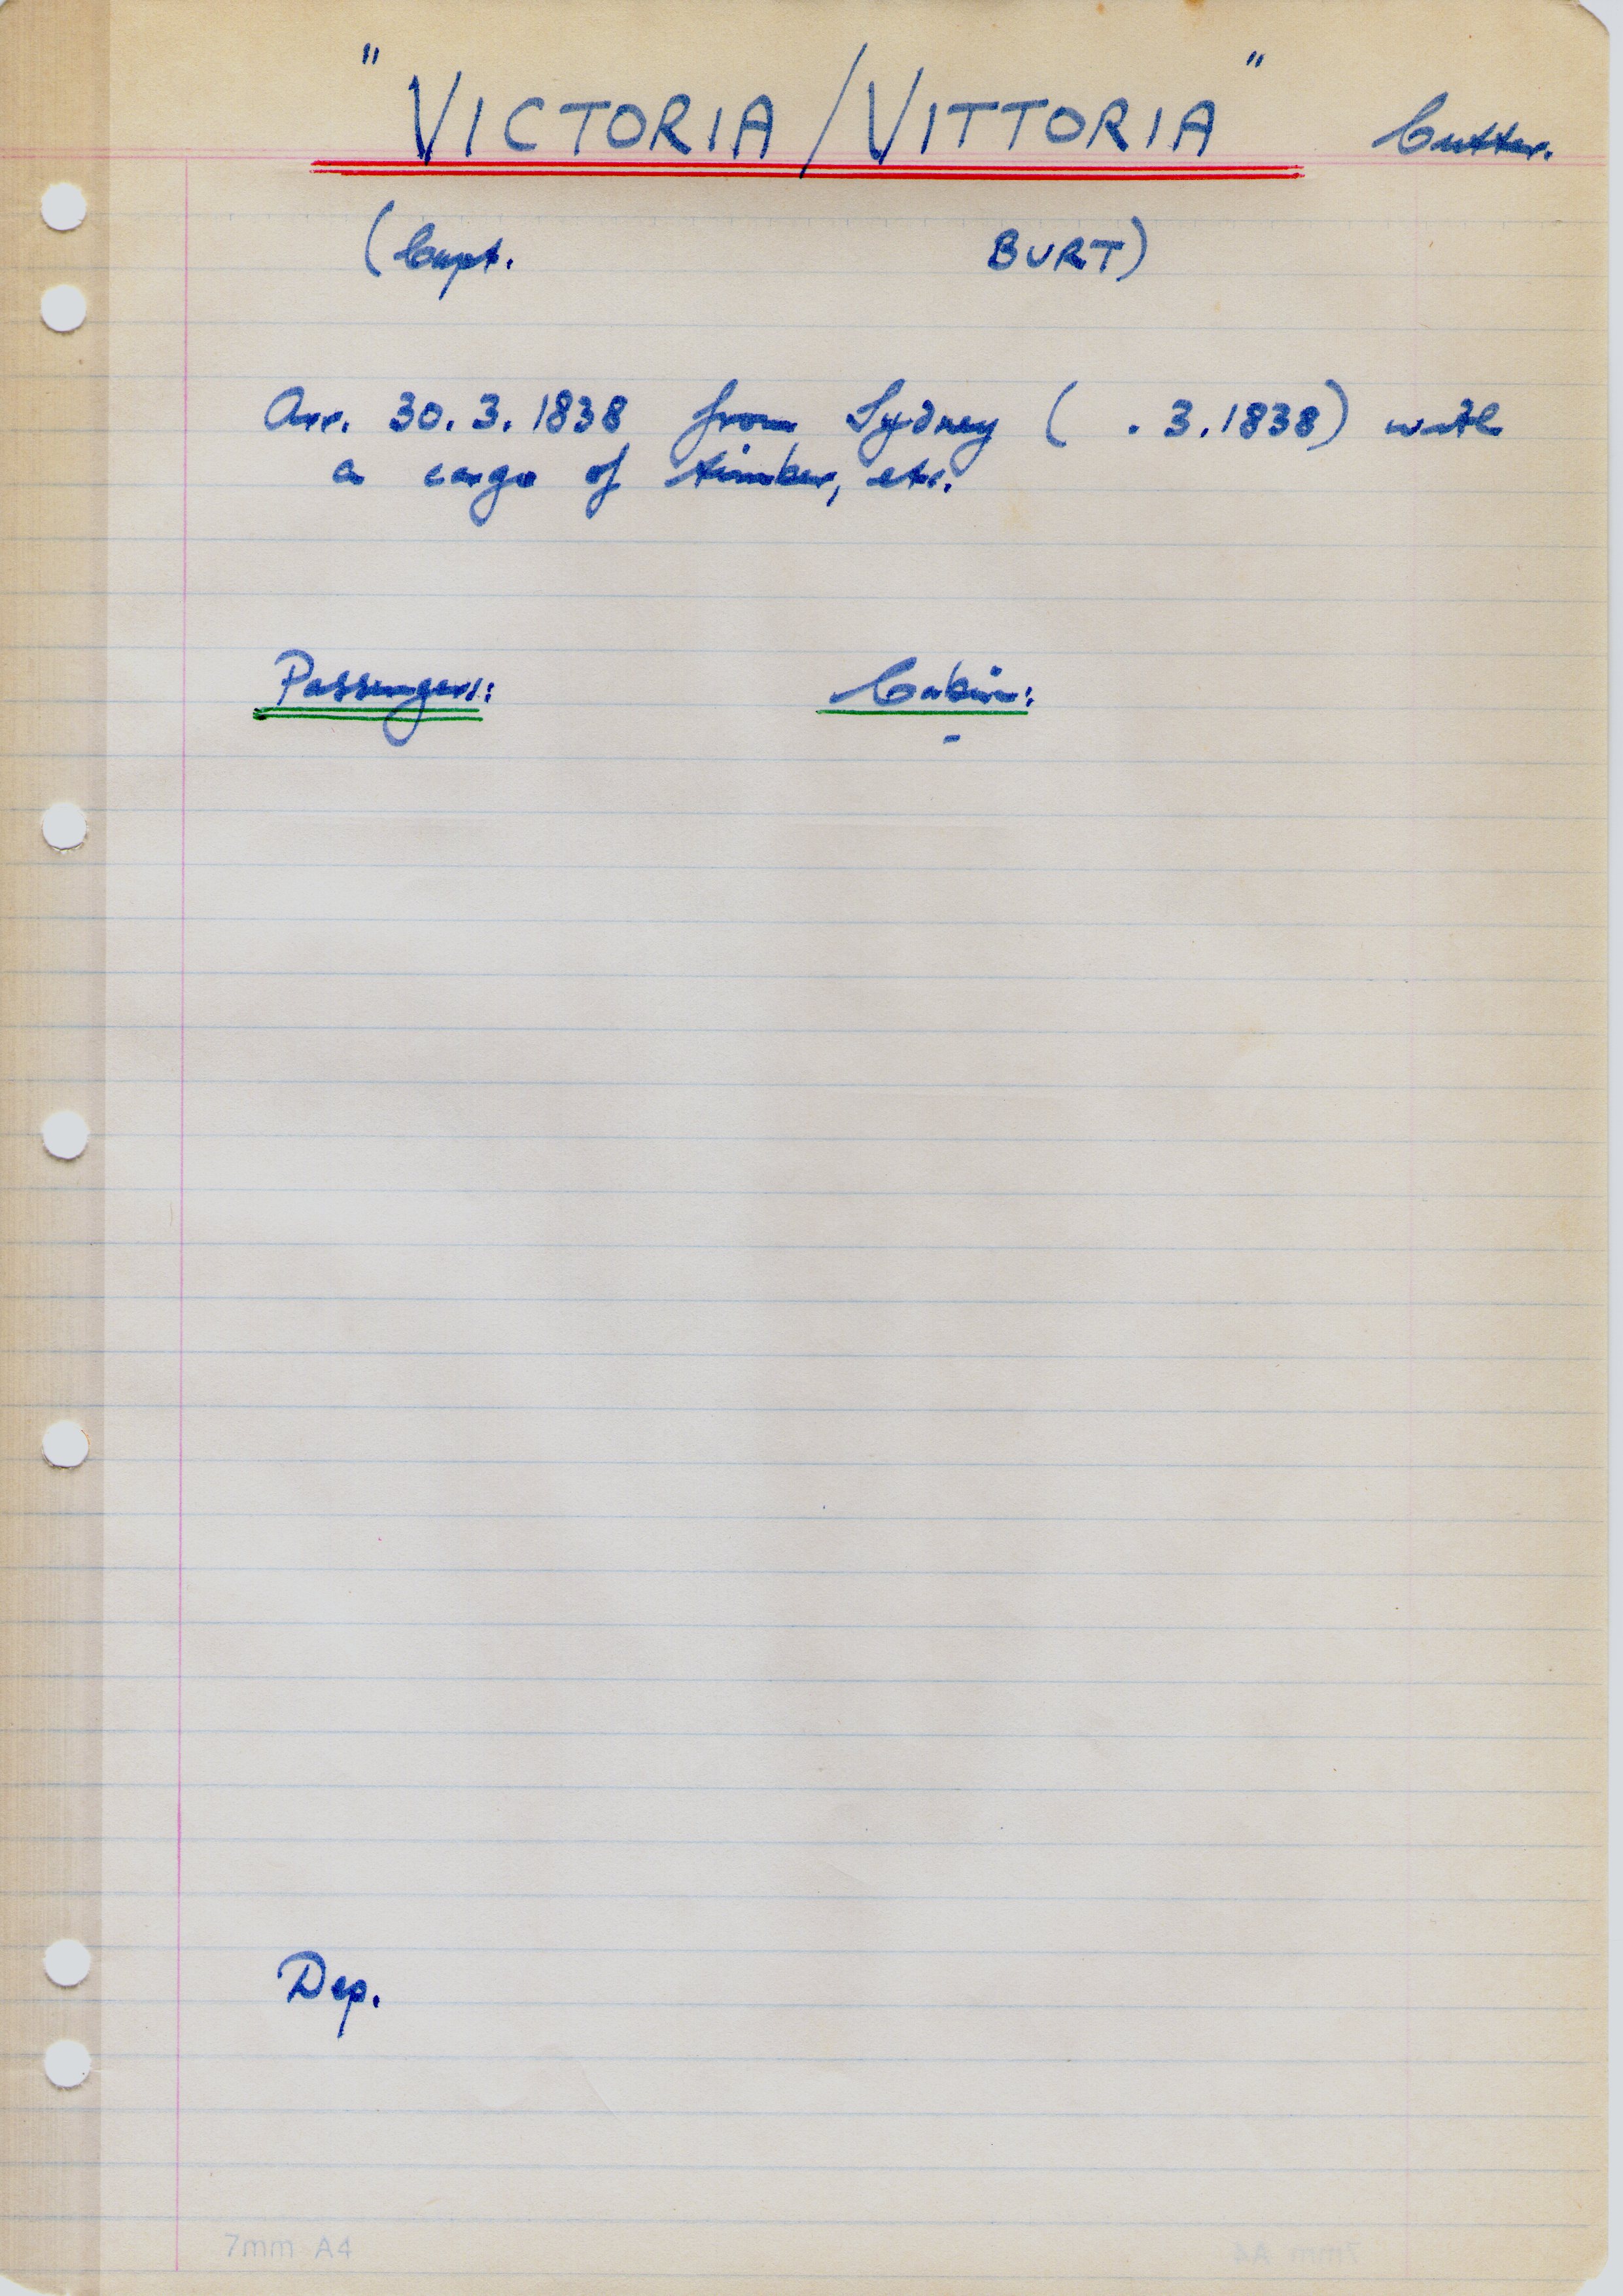 "VICTORIA/VITTORIA" Cutter.
(Capt. BURT)
Arr. 30.3.1838 from Sydney ( .3.1838) with
a cargo of timber, etc.
Passengers: Cabin:
-
Dep.
7mm A4